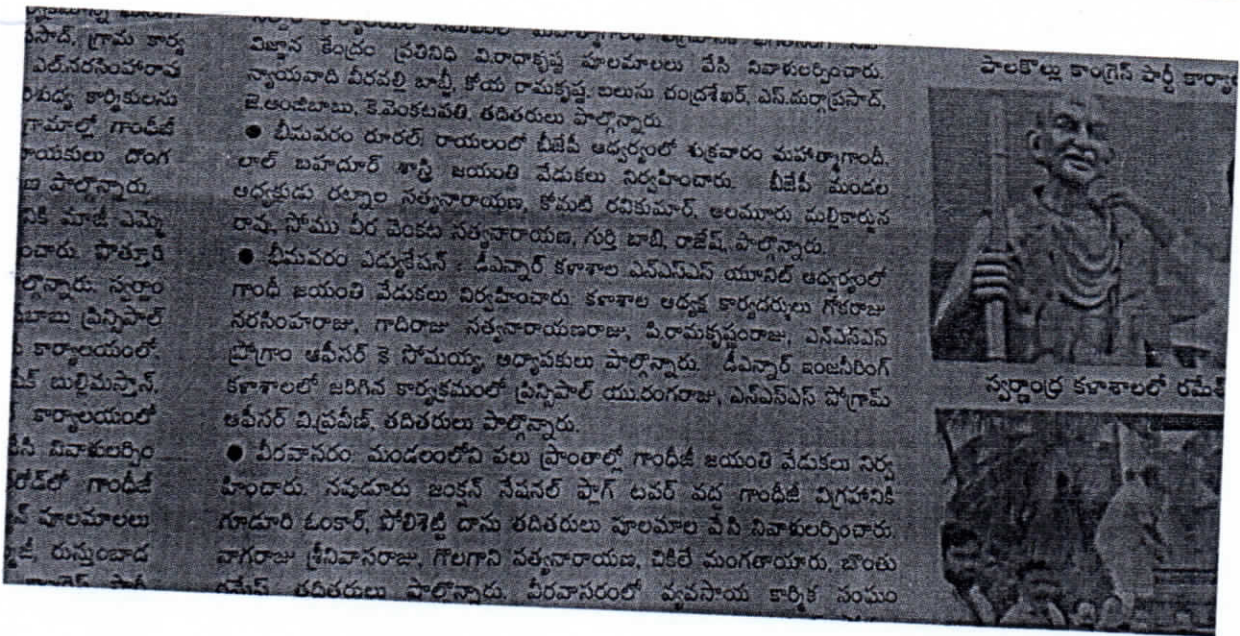 సాద్, గ్రామ కార్య
ఎల్.నరసింహారావు
కార్మికులను
గ్రామాల్లో గాంధీజీ
నాయకులు దొంగ
పాల్గొన్నారు.
నికి మాజీ ఎమ్మె
ంచారు. పొత్తూరి
ల్గొన్నారు. స్వర్ణాం
బాబు ప్రిన్సిపాల్
కార్యాలయంలో
బుల్లిమస్తాన్,
కార్యాలయంలో
వేసి నివాళులర్పిం
రోడ్‌లో గాంధీజీ
పూలమాలలు
రుస్తుంబాద
విజ్ఞాన కేంద్రం ప్రతినిధి వి.రాధాకృష్ణ పూలమాలలు వేసి నివాళులర్పించారు.
న్యాయవాది వీరవల్లి బాబ్జీ, కోయ రామకృష్ణ, బలుసు చంద్రశేఖర్, ఎస్.దుర్గాప్రసాద్,
జె.అంజిబాబు, కె.వెంకటపతి, తదితరులు పాల్గొన్నారు.
● భీమవరం రూరల్: రాయలంలో బీజేపీ ఆధ్వర్యంలో శుక్రవారం మహాత్మాగాంధీ,
లాల్ బహదూర్ శాస్త్రి జయంతి వేడుకలు నిర్వహించారు. బీజేపీ మండల
అధ్యక్షుడు రట్నాల సత్యనారాయణ, కోమటి రవికుమార్, అలమూరు మల్లికార్జున
రావు, సోము వీర వెంకట సత్యనారాయణ, గుర్తి బాబి, రాజేష్, పాల్గొన్నారు.
● భీమవరం ఎడ్యుకేషన్ : డీఎన్నార్ కళాశాల ఎన్ఎస్ఎస్ యూనిట్ ఆధ్వర్యంలో
గాంధీ జయంతి వేడుకలు నిర్వహించారు. కళాశాల అధ్యక్ష కార్యదర్శులు గోకరాజు
నరసింహరాజు, గాదిరాజు సత్యనారాయణరాజు, పి.రామకృష్ణంరాజు, ఎన్ఎస్ఎస్
ప్రోగ్రాం ఆఫీసర్ కె సోమయ్య, అధ్యాపకులు పాల్గొన్నారు. డీఎన్నార్ ఇంజనీరింగ్
కళాశాలలో జరిగిన కార్యక్రమంలో ప్రిన్సిపాల్ యు.రంగరాజు, ఎన్ఎస్ఎస్ పోగ్రామ్
ఆఫీసర్ వి.ప్రవీణ్, తదితరులు పాల్గొన్నారు.
● వీరవాసరం: మండలంలోని పలు ప్రాంతాల్లో గాంధీజీ జయంతి వేడుకలు నిర్వ
హించారు. నవుడూరు జంక్షన్ నేషనల్ ఫ్లాగ్ టవర్ వద్ద గాంధీజీ విగ్రహానికి
గూడూరి ఓంకార్, పోలిశెట్టి దాసు తదితరులు పూలమాల వేసి నివాళులర్పించారు.
నాగరాజు శ్రీనివాసరాజు, గొలగాని సత్యనారాయణ, చికిలే మంగతాయారు, బొంతు
రమేష్ తదితరులు పాల్గొన్నారు. వీరవాసరంలో వ్యవసాయ కార్మిక సంఘం
పాలకొల్లు కాంగ్రెస్ పార్టీ కార్యా
స్వర్ణాంధ్ర కళాశాలలో రమేశ్